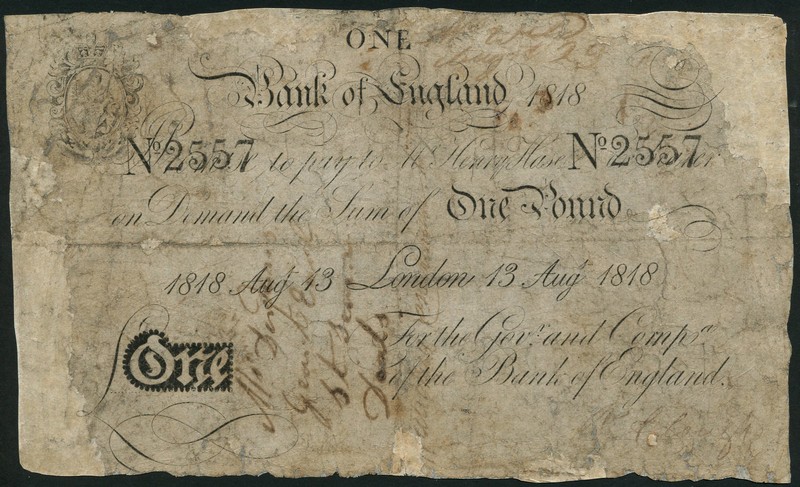 ONE
Bank of England 1818
No 2557 to pay to Mr Henry Hase No 2557
on Demand the Sum of One Pound
1818 Augt 13 London 13 Augt 1818
For the Govr. and Compa.
of the Bank of England.
One